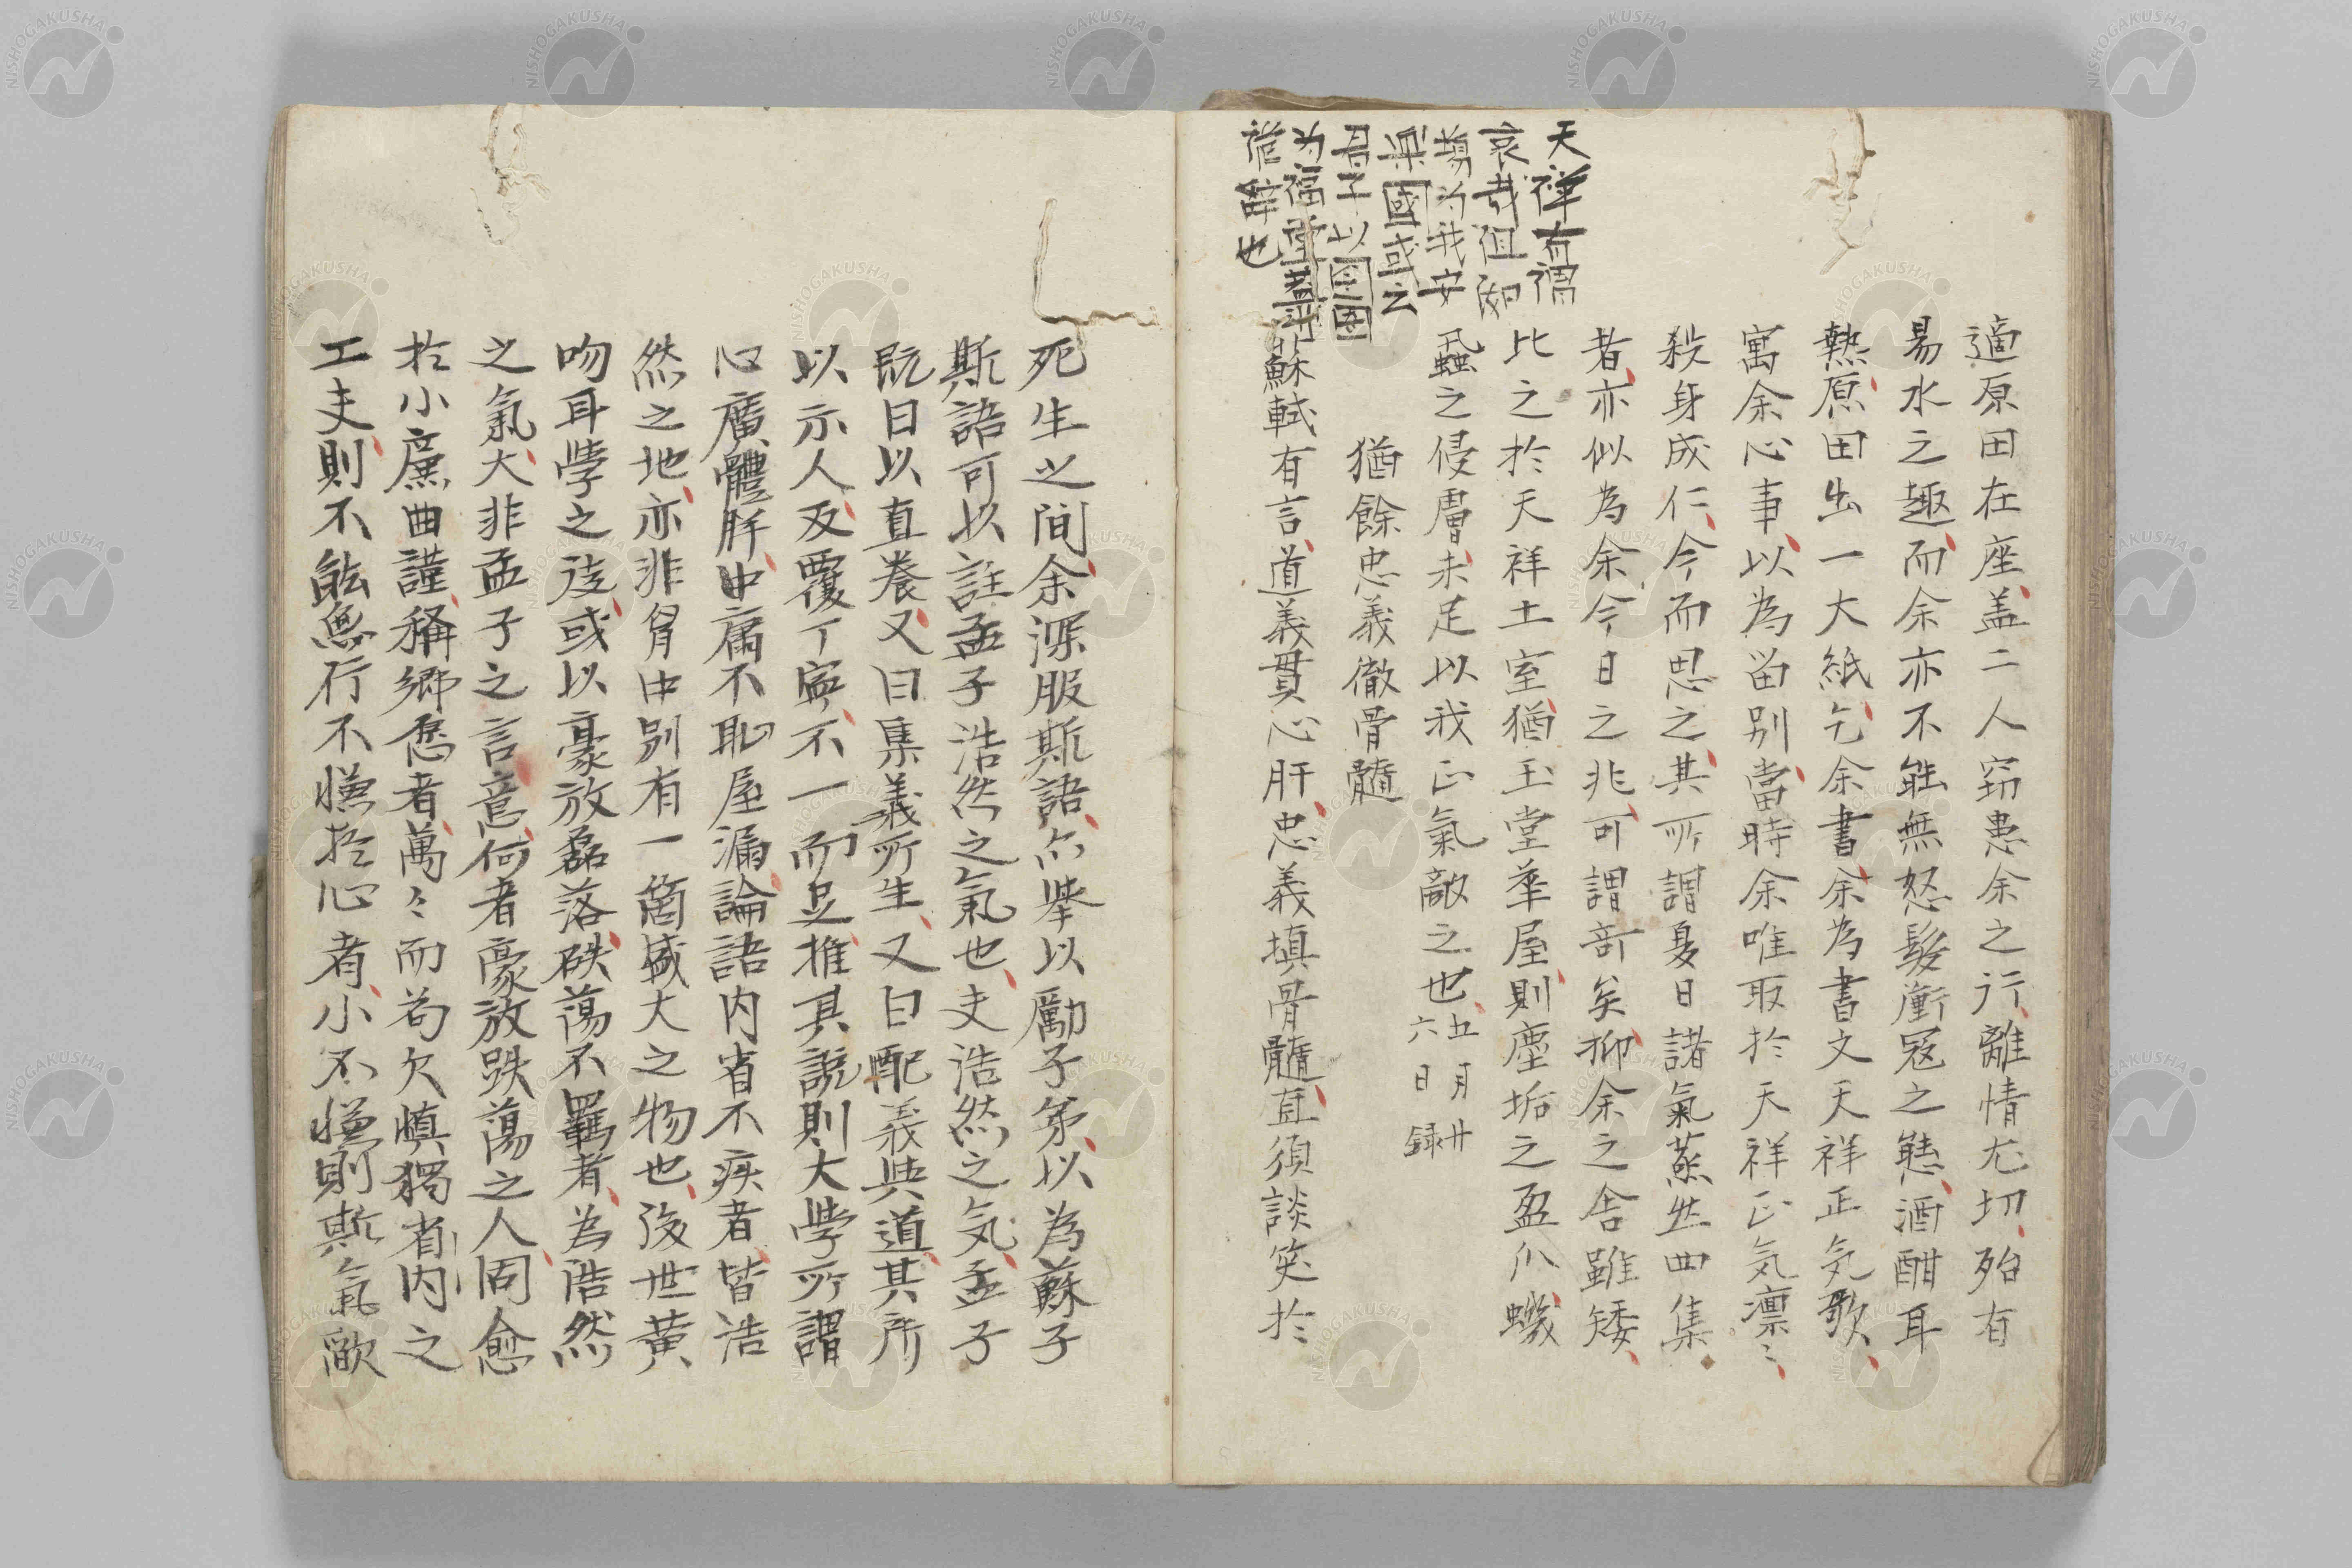 天祥有謂
哀哉沮洳
場為我安
樂國或云
君子以囹圄
為福堂蓋
從辭也
適原田在座蓋二人窃患余之行離情尤切殆有
易水之趣而余亦不能無怒髮衝冠之態酒酣耳
熱原田出一大紙乞余書余為書文天祥正気歌
寓余心事以為留別當時余唯取於天祥正気凛〻
殺身成仁今而思之其所謂夏日諸氣蒸然四集
者亦似為余今日之兆可謂奇矣抑余之舎雖矮
比之於天祥土室猶玉堂華屋則塵垢之盈爪蟣
蝨之侵膚未足以我正氣敵之也五月廿
六日録
猶餘忠義徹骨髓
蘇軾有言道義貫心肝忠義填骨髓直須談笑於
死生之間余深服斯語亦挙以勵子弟以為蘇子
斯語可以註孟子浩然之氣也夫浩然之気孟子
既曰以直養又曰集義所生又曰配義與道其所
以示人反覆丁寧不一而足推其説則大學所謂
心廣體胖中庸不恥屋漏論語内省不疾者皆浩
然之地亦非胷中別有一箇盛大之物也後世黄
吻耳學之徒或以豪放磊落跌蕩不羈者為浩然
之氣大非孟子之言意何者豪放跌蕩之人固愈
於小廉曲謹稱郷愿者萬〻而苟欠慎獨省内之
工夫則不能無行不慊於心者小不慊則斯氣歉